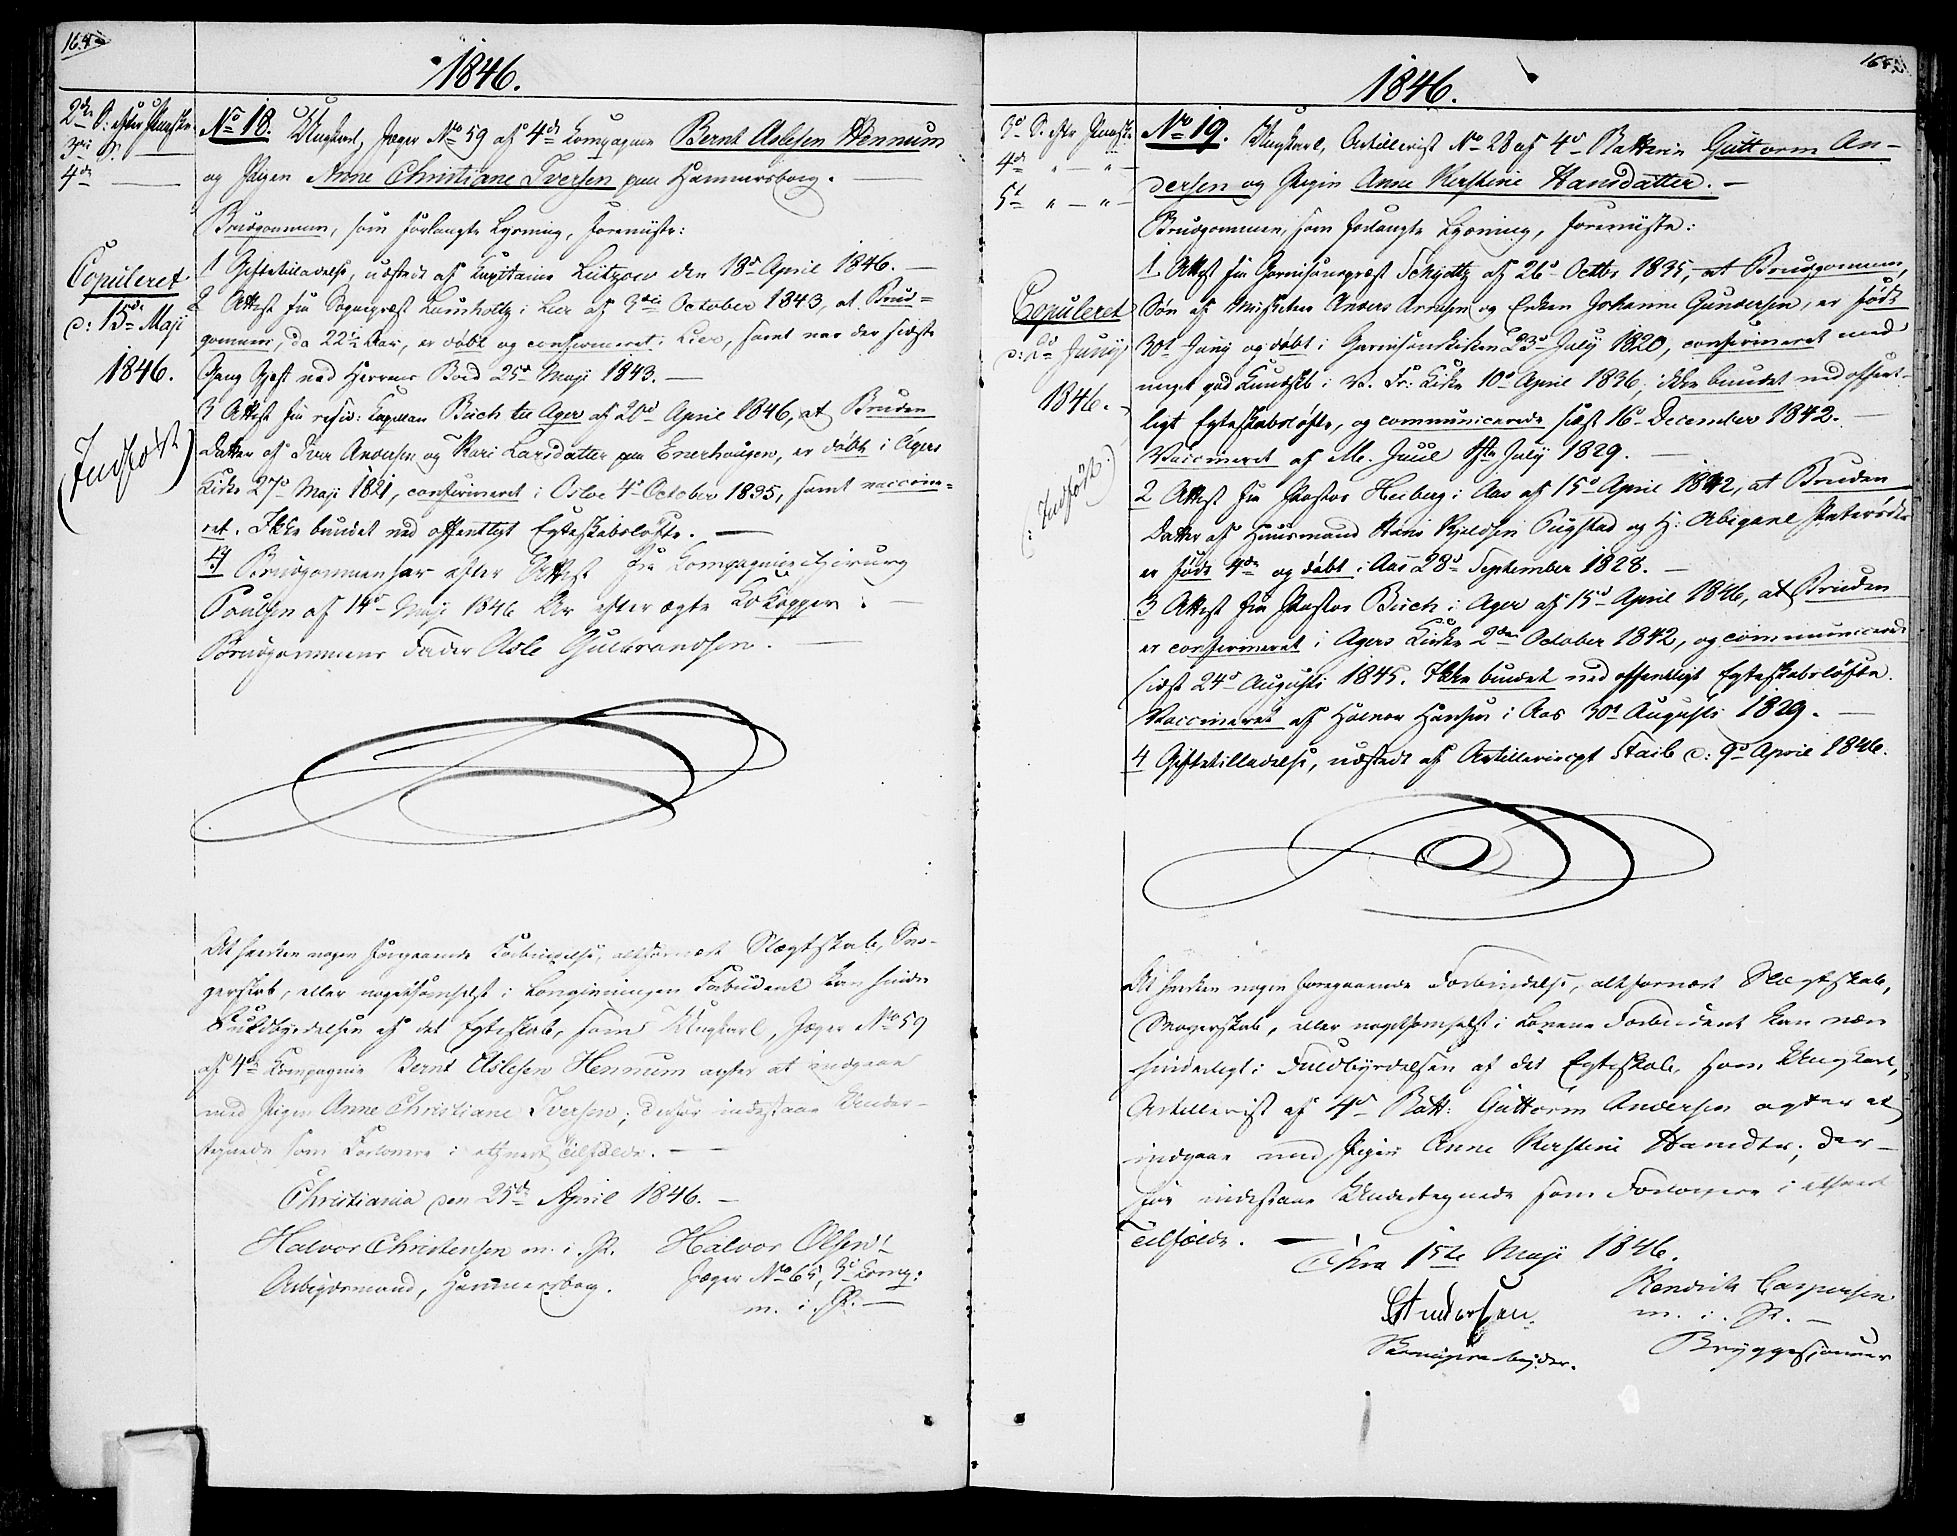 164
1846.
2den S: efter Paaske
3die S. —
4de —
No 18. Ungkarl, Jæger No 59 af 4de Kompagnie Bernt Aslesen Hennum
og Pigen Anne Christiane Iversen paa Hammersborg. —
Brudgommen, som forlangte Lysning, foreviiste:
Copuleret
d: 15de Maji
1846.
(Indført)
1 Giftetilladelse, udstedt af Kapitaine Lützow den 18de April 1846. —
2 Attest fra Sognepræst Lumholtz i Lier af 3die October 1843, at Brud-
gommen, da 22½ Aar, er døbt og confirmeret i Lier, samt var der sidste
Gang Gjest ved Herrens Bord 25de Maji 1843. —
3 Attest fra resid: Kapellan Buch til Ager af 20de April 1846, at Bruden
Datter af Iver Andersen og Kari Larsdatter paa Enerhaugen, er døbt i Agers
Kirke 27de Maji 1821, confirmeret i Osloe 4de October 1835, samt vaccine-
ret. Ikke bundet ved offentligt Egteskabsløfte. —
4) Brudgommen har efter Attest fra Kompagniechirurg
Poulsen af 14de Maji 1846 Ar efter ægte Kokopper. —
Brudgommens Fader Asle Gulbrandsen. —
At hverken nogen foregaaende Forbindelse, altfornært Slægtskab, Svo-
gerskab, eller nogetsomhelst i Lovgivningen Forbudent kan hindre
Fuldbyrdelsen af det Egteskab, som Ungkarl, Jæger No 59
af 4de Kompagnie Bernt Aslesen Hennum agter at indgaae
med Pigen Anne Christiane Iversen; derfor indestaae Under-
tegnede som Forlovere i ethvert Tilfælde. —
Christiania den 25de April 1846. —
Halvor Christensen m. i. P.
Arbeidsmand, Hammersborg.
Halvor Olsen
Jæger No 65, 3de Komp:
m. i. P. —
165
1846.
3de S. efter Paaske
4de " — " —
5te " — " —
No 19. Ungkarl, Artillerist No 28 af 4de Batterie Guttorm An-
dersen og Pigen Anne Kerstine Hansdatter. —
Brudgommen, som forlangte Lysning, foreviiste:
Copuleret
d: 2de Junij
1846.
(: Indført)
1 Attest fra Garnisonspræst Schjøtz af 26de Octbr 1835, at Brudgommen,
Søn af Anders Arntsen og Enken Johanne Gundersen, er født
30te Juny og døbt i Garnisonskirken 23de July 1820, confirmeret med
meget god Kundskab i V. Fr: Kirke 10de April 1836, ikke bundet ved offent-
ligt Egteskabsløfte, og communicerede sidst 16de December 1842. —
Vaccineret af Juul July 1829. —
2 Attest fra Pastor Heiberg i Aas af 15de April 1842, at Bruden
Datter af Huusmand Hans Kjeldsen Pugstad og H: Abigael
er født 4de og døbt i Aas 28de September 1828. —
3 Attest fra Pastor Buch i Ager af 15de April 1846, at Bruden
er confirmeret i Agers Kirke 2den October 1842, og communicerede
sidst 24de Augusti 1845. Ikke bundet ved offentligt Egteskabsløfte.
Vaccineret af Halvor Hansen i Aas 30te Augusti 1829. —
4 Giftetilladelse, udstedt af Artilleriecpt Staib d: 9de April 1846.
At hverken nogen foregaaende Forbindelse, altfornært Slægtskab,
Svogerskab, eller nogetsomhelst i Lovene Forbudent kan være
hinderligt i Fuldbyrdelsen af det Egteskab, som Ungkarl,
Artillerist af 4de Batt: Guttorm Andersen agter at
indgaae med Pigen Anne Kerstine Hansdtr; der-
for indestaae Undertegnede som Forlovere i ethvert
Tilfælde. —
Chra 1ste Maji 1846.
Andersen.
Hendrik Caspersen
m. i. P. —
Bryggesjouer